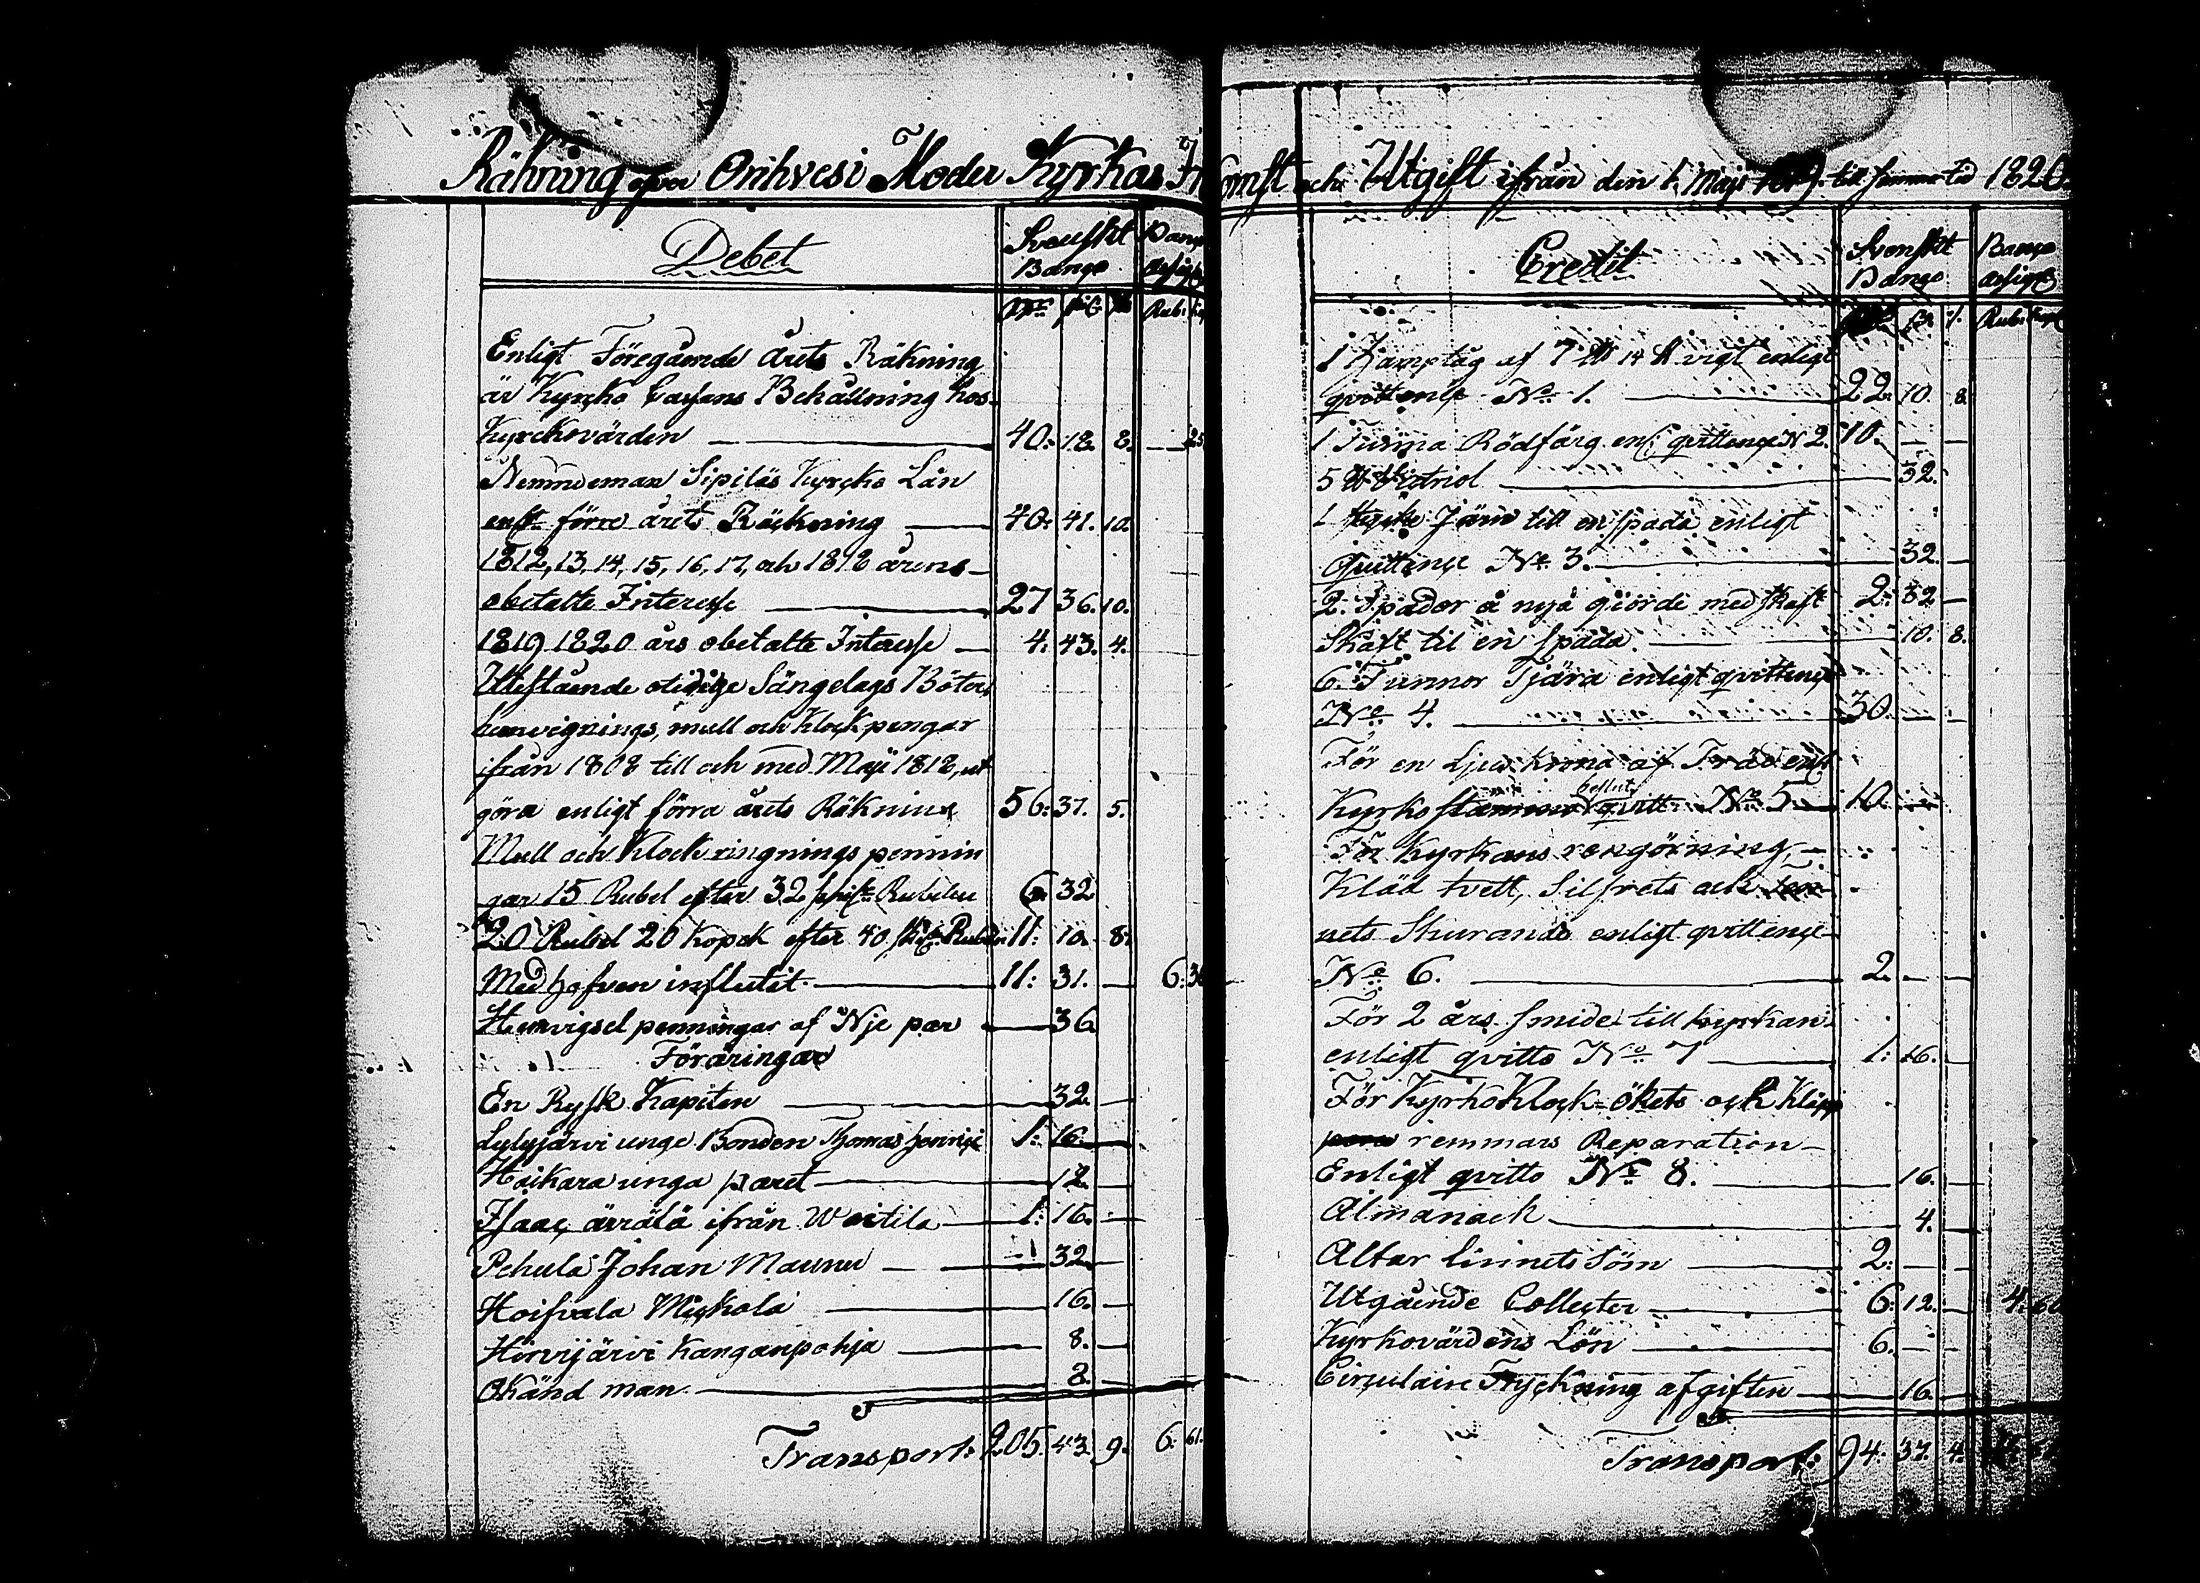 Räkning öfver Orihvesi Moder Kyrkas Inkomst och Utgift ifrån den 1. Maji 1819. till samma tid 1820.
Debet
Svenskt Banqo
Banqo assigt
Rub: kop
Enligt Föregående Årets Räkning
är Kyrcko Cassans Behållning hos
Kyrckovärden — 40: 18. 8. — 25
Nemndeman Sipiläs Kyrcko Lån
enl:t förre årets Räckning — 40: 41. 10.
1812, 13, 14, 15, 16, 17, och 1818 årens
obetalte Interesse — 27 36. 10.
1819 1820 års obetalte Interesse — 4: 43. 4.
Utestående otidige Sängelags Böter,
hemvignings, mull och Klockpengar
ifrån 1808 till och med Maji 1818, ut
göra enligt förra årets Räkning 56: 37. 5.
Mull och Klockringnings pennin
gar 15 Rubel efter 32 sk: Rubelen 6: 32
20 Rubel 20 Kopek efter 40 sk: Rubeln 11: 10. 8.
Med hafven influtit — 11: 31. — 6: 36
Hemvigsel penningar af Nje par — 36
Föräringar
En Rysk Kapiten — 32. —
Lylyjärvi unge Bonden Thomas Henrics 1: 16. —
Haikara unga paret — 12. —
Isaac ifrån Waitila — 1: 16. —
Pehula Johan Maunu — 32 —
Hoifvala Mickola — 16. —
Hirvijärvi Kanganpohja — 8. —
Okänd man — 8. —
Transport: 205. 43. 9. 6. 61.
Credit
Svenskt Banqo
Banqo assigt
Rub: kop
1 Jamptåg af 7 ℔ 14 ℔ vigt enligt
qvittence N:o 1. — 22. 10. 8.
1 Tunna Rödfärg enl: qvittence N 2. 10. — —
5 ℔ Victriol — 32.
1 Stycke Järn till en spada enligt
Quittence N:o 3. — 32. —
2. Spador å nyå giorde med skaft 2: 32 —
Skaft til en spada. — 10. 8.
6. Tunnor Tjära enligt qvittence
N:o 4. — 30. — —
För en Ljus krona af Träd enl:t
Kyrko stämmo beslut qvitt: N:o 5 — 10. —
För Kyrkans rengörning, —
Kläd tvett, Silfrets och ten
nets Skurande enligt qvittence
N:o 6. — 2. — —
För 2 års smide till kyrkan
enligt qvitto N:o 7 — 1: 16. —
För Kyrko Klock-Okets och Kläpp
remmars Reparation —
Enligt qvitto N:o 8. — 16. —
Almanach — 4. —
Altar linnets söm — 2: — —
Utgående Collecter — 6: 12. — 4: 60
Kyrkovärdens Lön — 6. — —
Circulaire Tryckning afgiften — 16. —
Transport: 94: 37. 4.